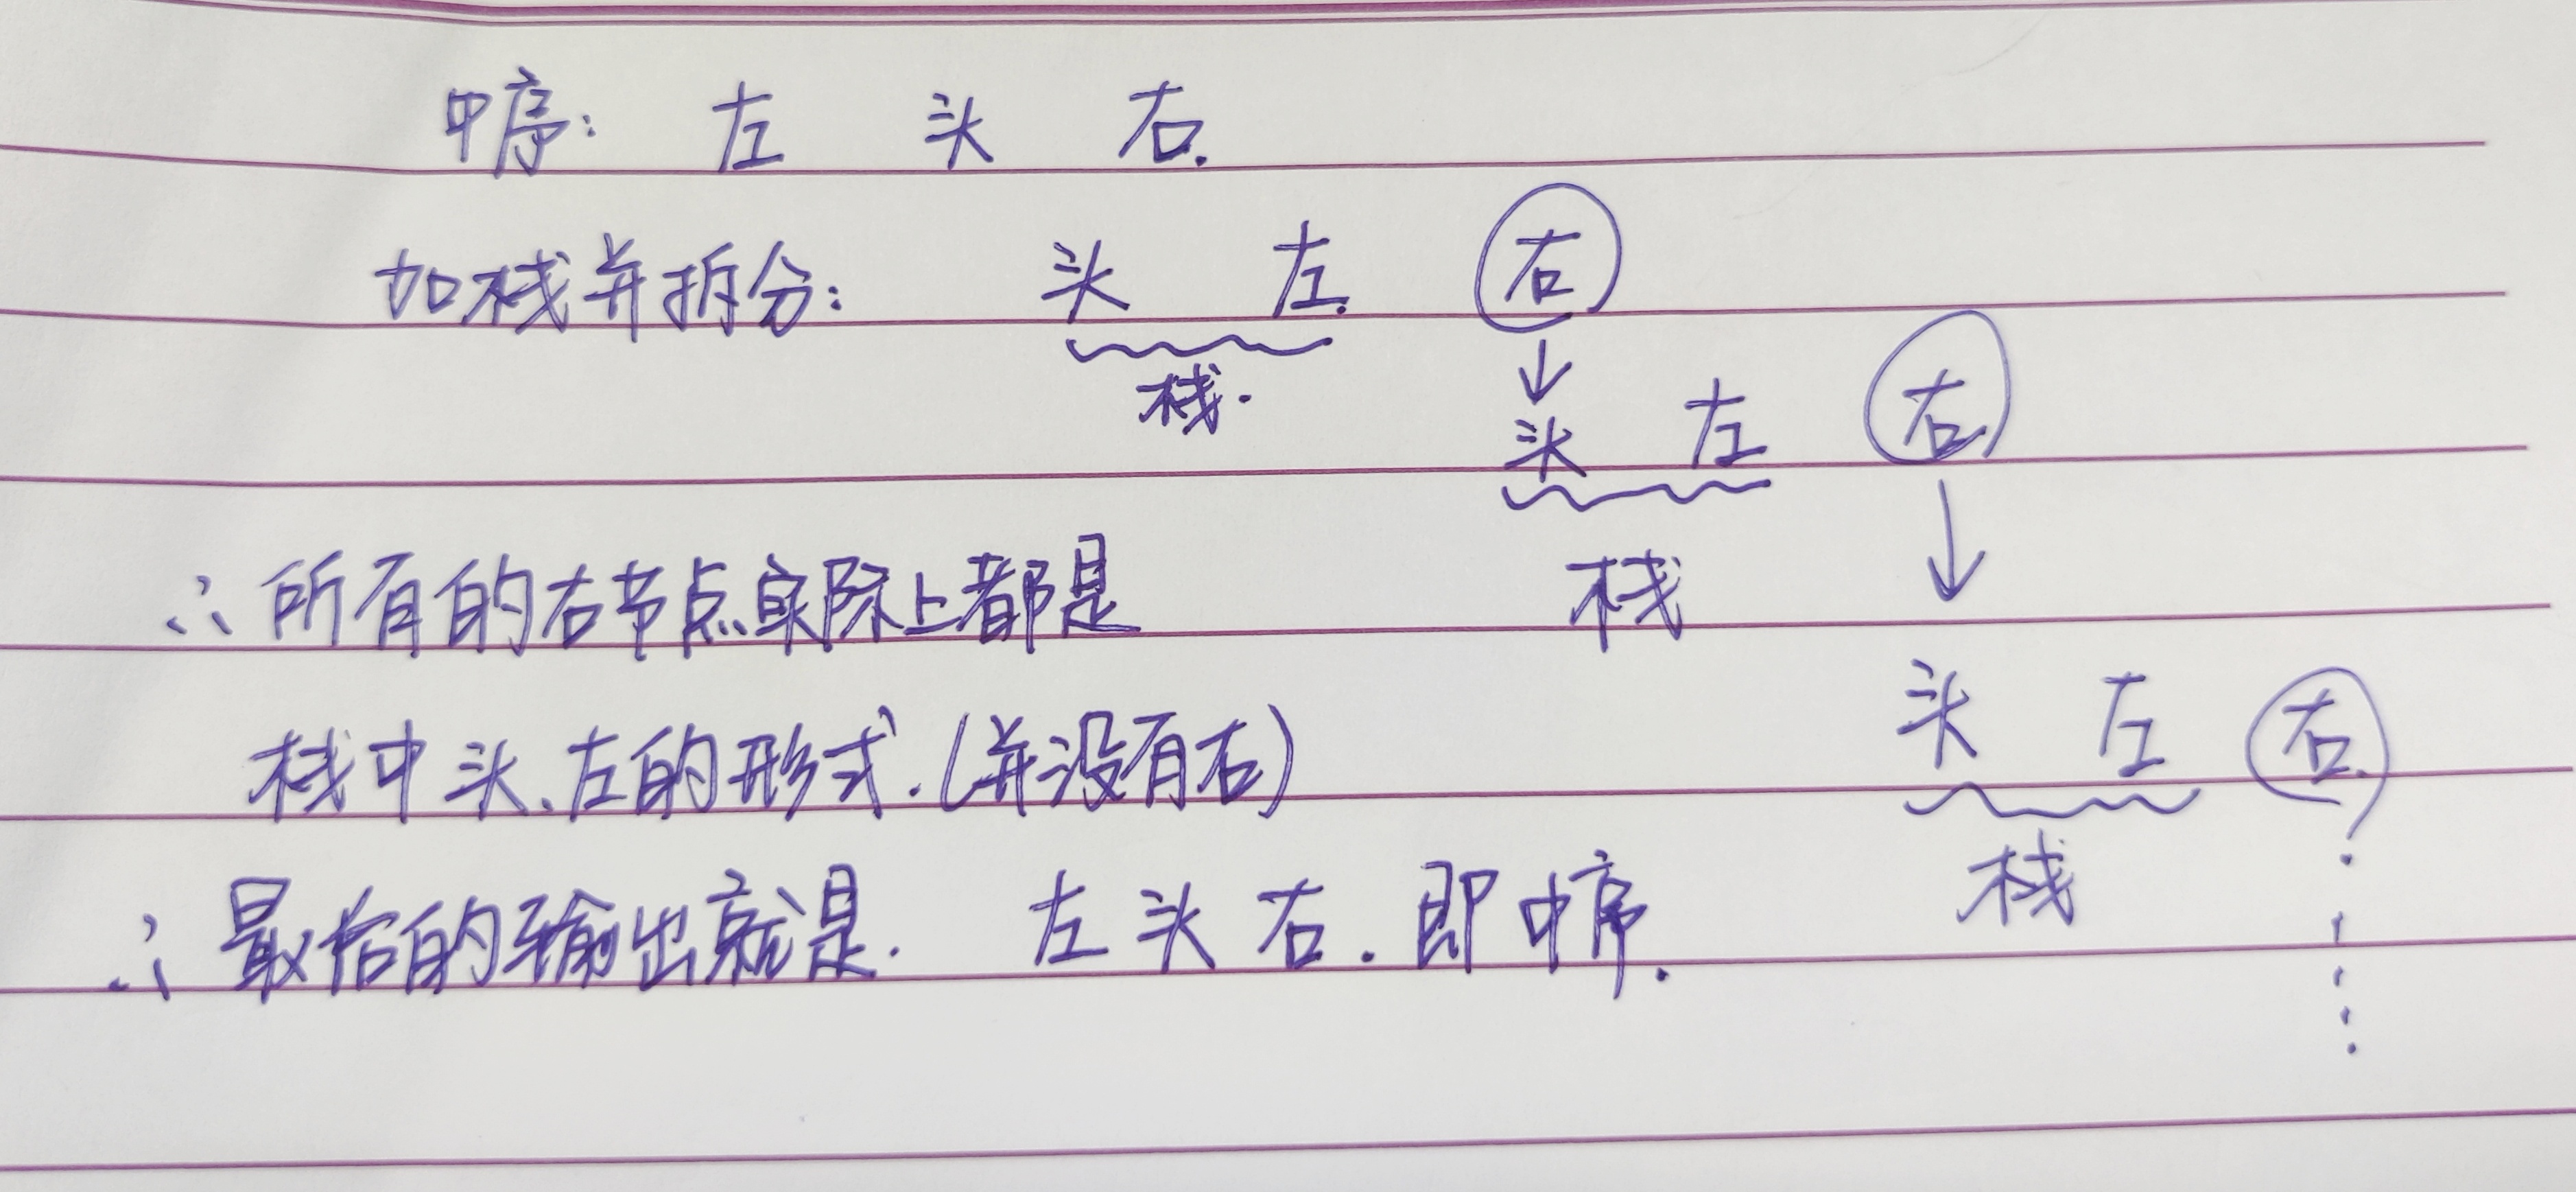 中序: 左 头 右.
加栈并拆分: 头 左. 右
栈.
头 左 右.
∴所有的右节点实际上都是 栈
头 左 右.
栈中头、左的形式.(并没有右)
栈
∴最后的输出就是. 左 头 右. 即中序.